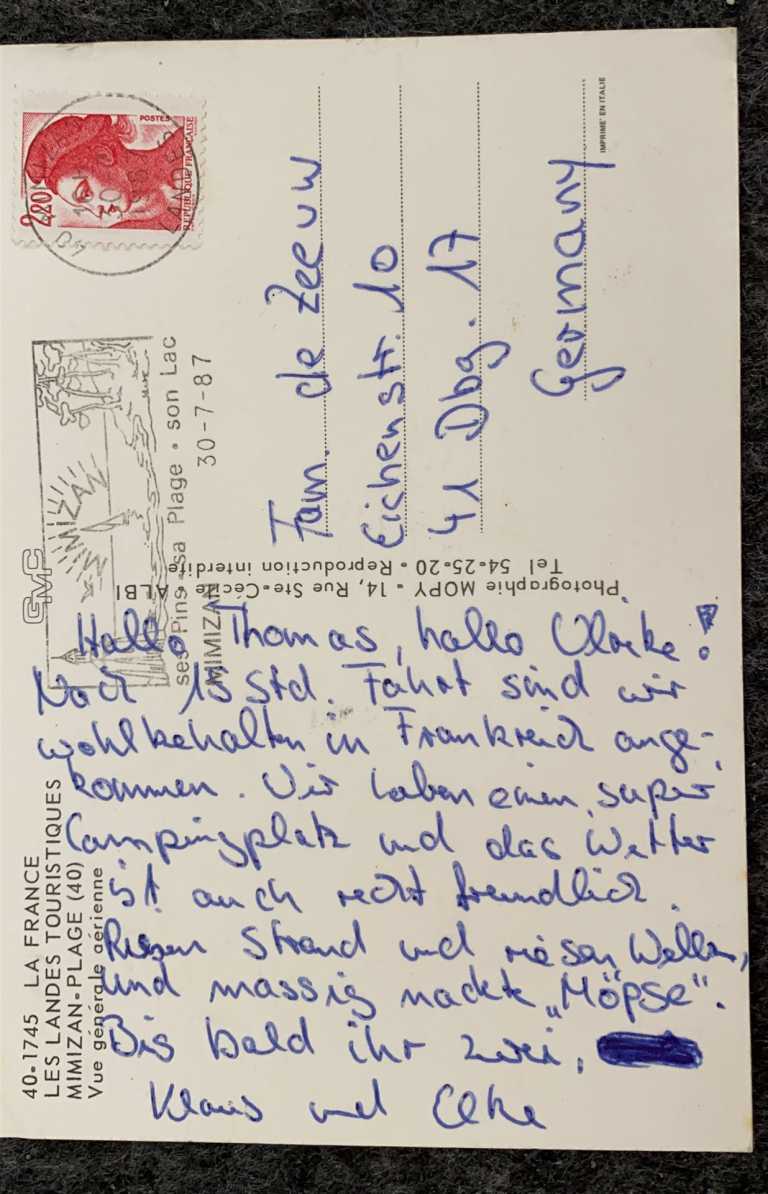 40-1745 LA FRANCE
LES LANDES TOURISTIQUES
MIMIZAN-PLAGE (40)
Vue générale aérienne
Hallo Thomas, hallo Ulrike!
Nach 15 Std. Fahrt sind wir
wohlbehalten in Frankreich ange-
kommen. Wir haben einen super
Campingplatz und das Wetter
ist auch recht freundlich.
Riesen Strand und riesen Wellen,
und massig nackte „Möpse“.
Bis bald ihr zwei,
Klaus und Elke
Photographie MOPY - 14, Rue Ste-Cécile ALBI
Tel 54-25-20 - Reproduction interdite
GMC
MIMIZAN
ses Pins sa Plage • son Lac
MIMIZAN 30-7-87
2,20
POSTES
REPUBLIQUE FRANÇAISE
LANDES
Fam. de Zeeuw
Eichenstr. 10
41 Dbg. 17
Germany
IMPRIMÉ EN ITALIE